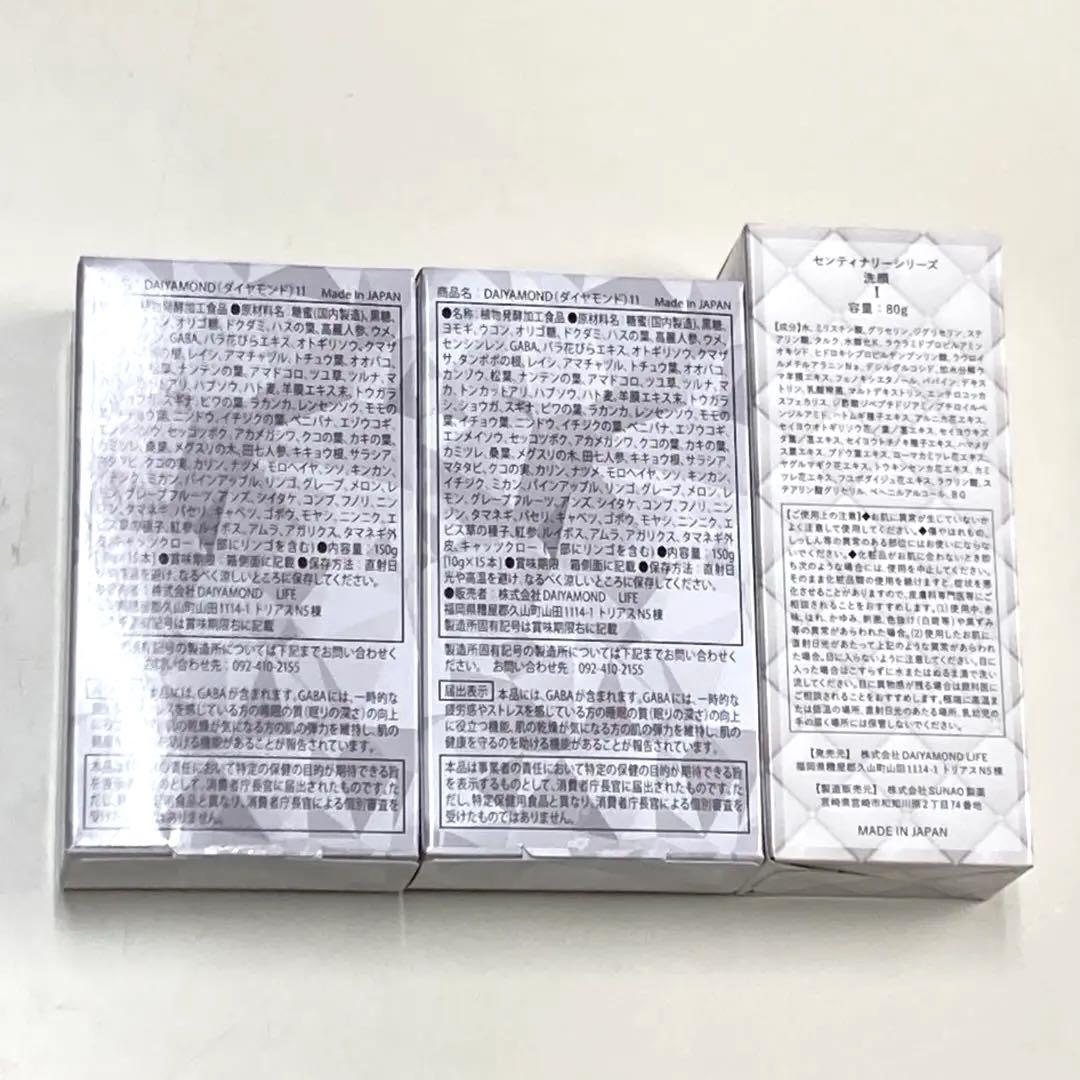 DAIYAMOND(ダイヤモンド)11 Made in JAPAN
植物発酵加工食品 ●原材料名:糖蜜(国内製造)、黒糖、
オリゴ糖、ドクダミ、ハスの葉、高麗人参、ウメ、
GABA、バラ花びらエキス、オトギリソウ、クマザ
レイシ、アマチャヅル、トチュウ葉、オオバコ、
ナンテンの葉、アマドコロ、ツユ草、ツルナ、マ
アリ、ハブソウ、ハト麦、羊膜エキス末、トウガラ
スギナ、ビワの葉、ラカンカ、レンセンソウ、モモの
イチョウ葉、ニンドウ、イチジクの葉、ベニバナ、エゾウコギ、
エンメイソウ、セッコツボク、アカメガシワ、クコの葉、カキの葉、
カミツレ、桑葉、メグスリの木、田七人参、キキョウ根、サラシア、
マタタビ、クコの実、カリン、ナツメ、モロヘイヤ、シソ、キンカン、
イチジク、ミカン、パインアップル、リンゴ、グレープ、メロン、レ
モン、グレープフルーツ、アンズ、シイタケ、コンブ、フノリ、ニンジ
ン、タマネギ、パセリ、キャベツ、ゴボウ、モヤシ、ニンニク、エ
ビス草の種子、紅参、ルイボス、アムラ、アガリクス、タマネギ外
皮、キャッツクロー 部にリンゴを含む)●内容量:150g
15本]●賞味期限 箱側面に記載●保存方法:直射日
光や高温を避け、なるべく涼しいところに保存してください。
株式会社DAIYAMOND LIFE
福岡県糟屋郡久山町山田1114-1 トリアスN5棟
製造所固有記号は賞味期限右に記載
製造所固有記号の製造所については下記までお問い合わせく
ださい。お問い合わせ先:092-410-2155
本品には、GABAが含まれます。GABAには、一時的な
疲労感やストレスを感じている方の睡眠の質(眠りの深さ)の向上
に役立つ機能、肌の乾燥が気になる方の肌の弾力を維持し、肌の
健康を守るのを助ける機能があることが報告されています。
本品は事業者の責任において特定の保健の目的が期待できる旨
を表示するものとして、消費者庁長官に届出されたものです。た
だし、特定保健用食品と異なり、消費者庁長官による個別審査を
受けたものではありません。
商品名:DAIYAMOND(ダイヤモンド)11 Made in JAPAN
●名称:植物発酵加工食品●原材料名:糖蜜(国内製造)、黒糖、
ヨモギ、ウコン、オリゴ糖、ドクダミ、ハスの葉、高麗人参、ウメ、
センシンレン、GABA、バラ花びらエキス、オトギリソウ、クマザ
サ、タンポポの根、レイシ、アマチャヅル、トチュウ葉、オオバコ、
カンゾウ、松葉、ナンテンの葉、アマドコロ、ツユ草、ツルナ、マ
カ、トンカットアリ、ハブソウ、ハト麦、羊膜エキス末、トウガラ
シ、ショウガ、スギナ、ビワの葉、ラカンカ、レンセンソウ、モモの
葉、イチョウ葉、ニンドウ、イチジクの葉、ベニバナ、エゾウコギ、
エンメイソウ、セッコツボク、アカメガシワ、クコの葉、カキの葉、
カミツレ、桑葉、メグスリの木、田七人参、キキョウ根、サラシア、
マタタビ、クコの実、カリン、ナツメ、モロヘイヤ、シソ、キンカン、
イチジク、ミカン、パインアップル、リンゴ、グレープ、メロン、レ
モン、グレープフルーツ、アンズ、シイタケ、コンブ、フノリ、ニンジ
ン、タマネギ、パセリ、キャベツ、ゴボウ、モヤシ、ニンニク、エ
ビス草の種子、紅参、ルイボス、アムラ、アガリクス、タマネギ外
皮、キャッツクロー 部にリンゴを含む)●内容量:150g
[10g×15本]●賞味期限 箱側面に記載●保存方法:直射日
光や高温を避け、なるべく涼しいところに保存してください。
●販売者:株式会社DAIYAMOND LIFE
福岡県糟屋郡久山町山田1114-1 トリアスN5棟
製造所固有記号は賞味期限右に記載
製造所固有記号の製造所については下記までお問い合わせく
ださい。お問い合わせ先:092-410-2155
届出表示 本品には、GABAが含まれます。GABAには、一時的な
疲労感やストレスを感じている方の睡眠の質(眠りの深さ)の向上
に役立つ機能、肌の乾燥が気になる方の肌の弾力を維持し、肌の
健康を守るのを助ける機能があることが報告されています。
本品は事業者の責任において特定の保健の目的が期待できる旨
を表示するものとして、消費者庁長官に届出されたものです。た
だし、特定保健用食品と異なり、消費者庁長官による個別審査を
受けたものではありません。
センティナリーシリーズ
洗顔
I
容量:80g
【成分】水、ミリスチン酸、グリセリン、ジグリセリン、ステ
アリン酸、タルク、水酸化K、ラウラミドプロピルアミン
オキシド、ヒドロキシプロピルデンプンリン酸、ラウロイ
ルメチルアラニンNa、デシルグルコシド、加水分解ウ
マ羊膜エキス、フェノキシエタノール、パパイン、デキス
トリン、乳酸桿菌、マルトデキストリン、エンテロコッカ
スフェカリス、ジ酢酸ジペプチドジアミノブチロイルベ
ンジルアミド、ハトムギ種子エキス、アルニカ花エキス、
セイヨウオトギリソウ花/葉/茎エキス、セイヨウキズ
タ葉/茎エキス、セイヨウトチノキ種子エキス、ハマメリ
ス葉エキス、ブドウ葉エキス、ローマカミツレ花エキス、
ヤグルマギク花エキス、トウキンセンカ花エキス、カミ
ツレ花エキス、フユボダイジュ花エキス、ラウリン酸、ス
テアリン酸グリセリル、ベヘニルアルコール、BG
【ご使用上の注意】◆お肌に異常が生じていないか
よく注意して使用してください。◆傷やはれもの、
しっしん等の異常のある部位にはお使いにならな
いでください。◆化粧品がお肌に合わないとき即
ち次のような場合には、使用を中止してください。
そのまま化粧品類の使用を続けますと、症状を悪
化させることがありますので、皮膚科専門医等にご
相談されることをおすすめします。(1)使用中、赤
味、はれ、かゆみ、刺激、色抜け(白斑等)や黒ずみ
等の異常があらわれた場合。(2)使用したお肌に
直射日光があたって上記のような異常があらわれ
た場合。目に入らないように注意してください。目に
入った場合はこすらずに水またはぬるま湯で洗い
流してください。目に異物感が残る場合は眼科医に
ご相談されることをおすすめします。極端に高温ま
たは低温の場所、直射日光のあたる場所、乳幼児の
手の届く場所には保管しないでください。
【発売元】 株式会社DAIYAMOND LIFE
福岡県糟屋郡久山町山田1114-1 トリアスN5棟
【製造販売元】 株式会社SUNAO製薬
宮崎県宮崎市和知川原2丁目74番地
MADE IN JAPAN